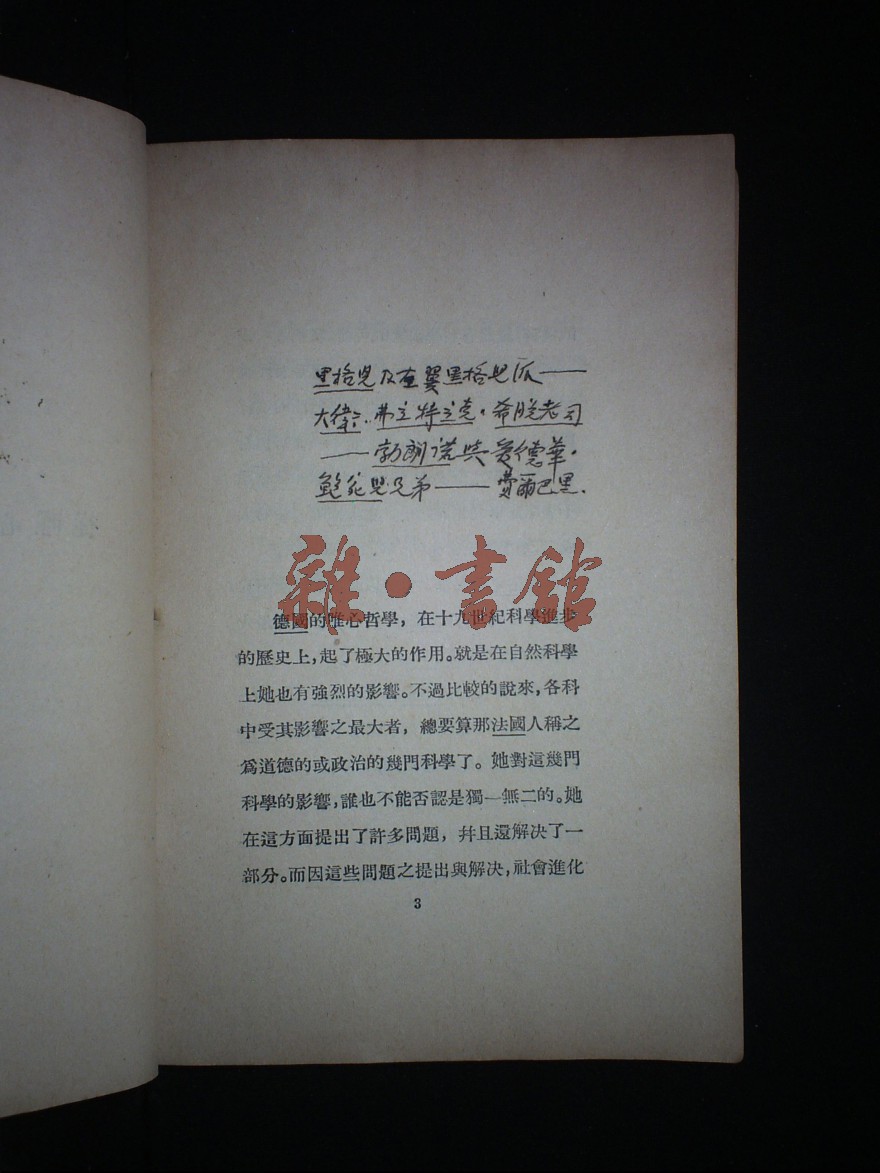 黑格兒及左翼黑格兒派——
大衛·弗立特立克·希脫老司
——勃朗諾與愛德華·
鮑兒兄弟——費爾巴黑.
雜·書館
德國的唯心哲學，在十九世紀科學進步
的歷史上，起了極大的作用。就是在自然科學
上她也有強烈的影響。不過比較的說來，各科
中受其影響之最大者，總要算那法國人稱之
爲道德的或政治的幾門科學了。她對這幾門
科學的影響，誰也不能否認是獨一無二的。她
在這方面提出了許多問題，幷且還解決了一
部分。而因這些問題之提出與解決，社會進化
3